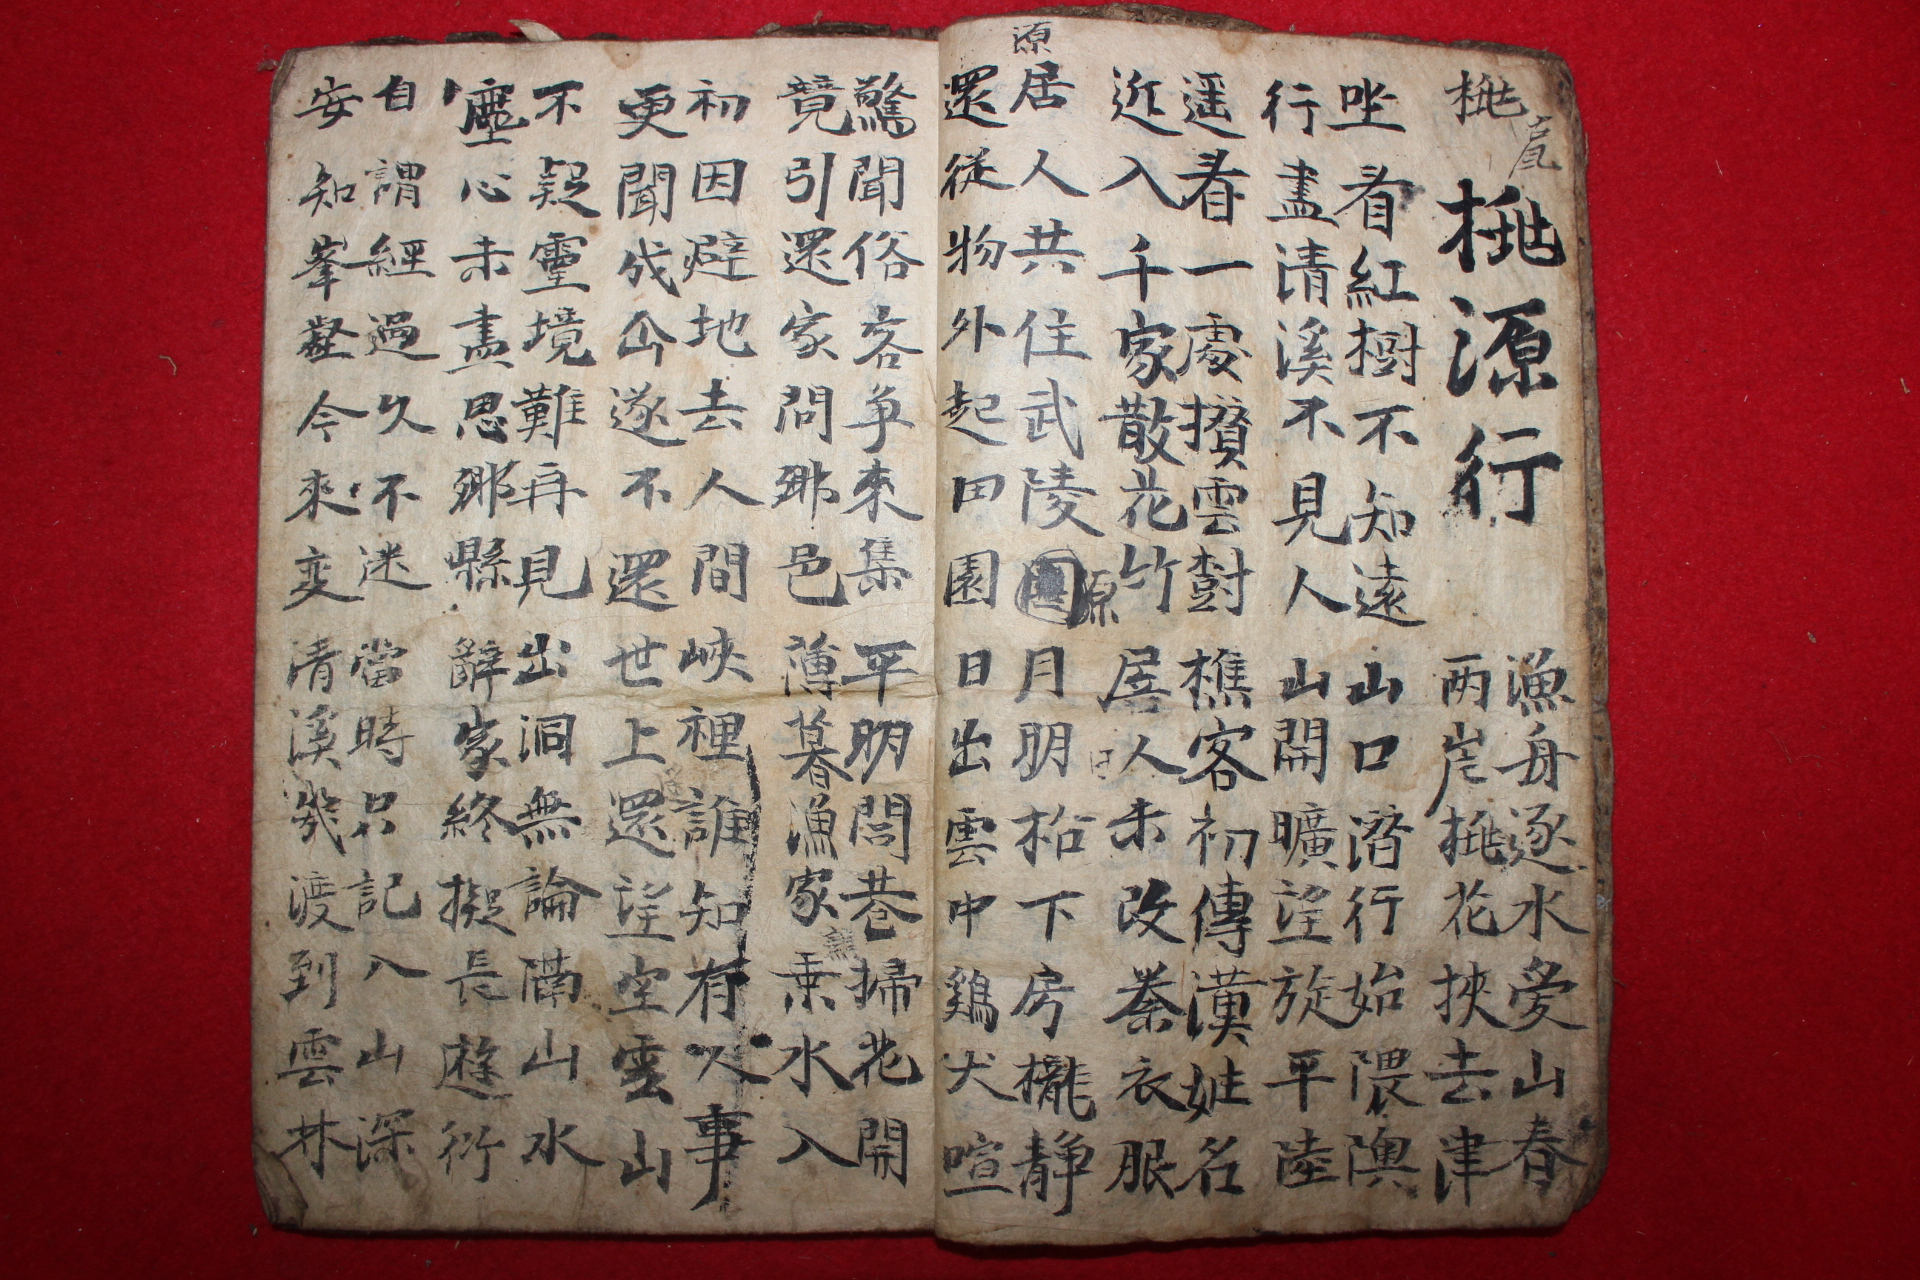 桃
桃源行
漁舟逐水愛山春
両岸桃花挾去津
坐看紅樹不知遠 山口潛行始隈隩
行盡清溪不見人 山開曠望旋平陸
遥看一處攢雲樹 樵客初傳漢姓名
近入千家散花竹 居人未改秦衣服
源
居人共住武陵源 月明松下房櫳静
還從物外起田園 日出雲中鷄犬喧
驚聞俗客争來集 平明閭巷掃花開
竟引還家問鄉邑 薄暮漁家乘水入
初因避地去人間 峽裡誰知有人事
更聞成仚遂不還 世上還望空雲山
不疑靈境難再見 出洞無論隔山水
塵心未盡思鄉縣 辭家終擬長遊衍
自謂經過久不迷 當時只記入山深
安知峯壑今來変 清溪幾渡到雲林